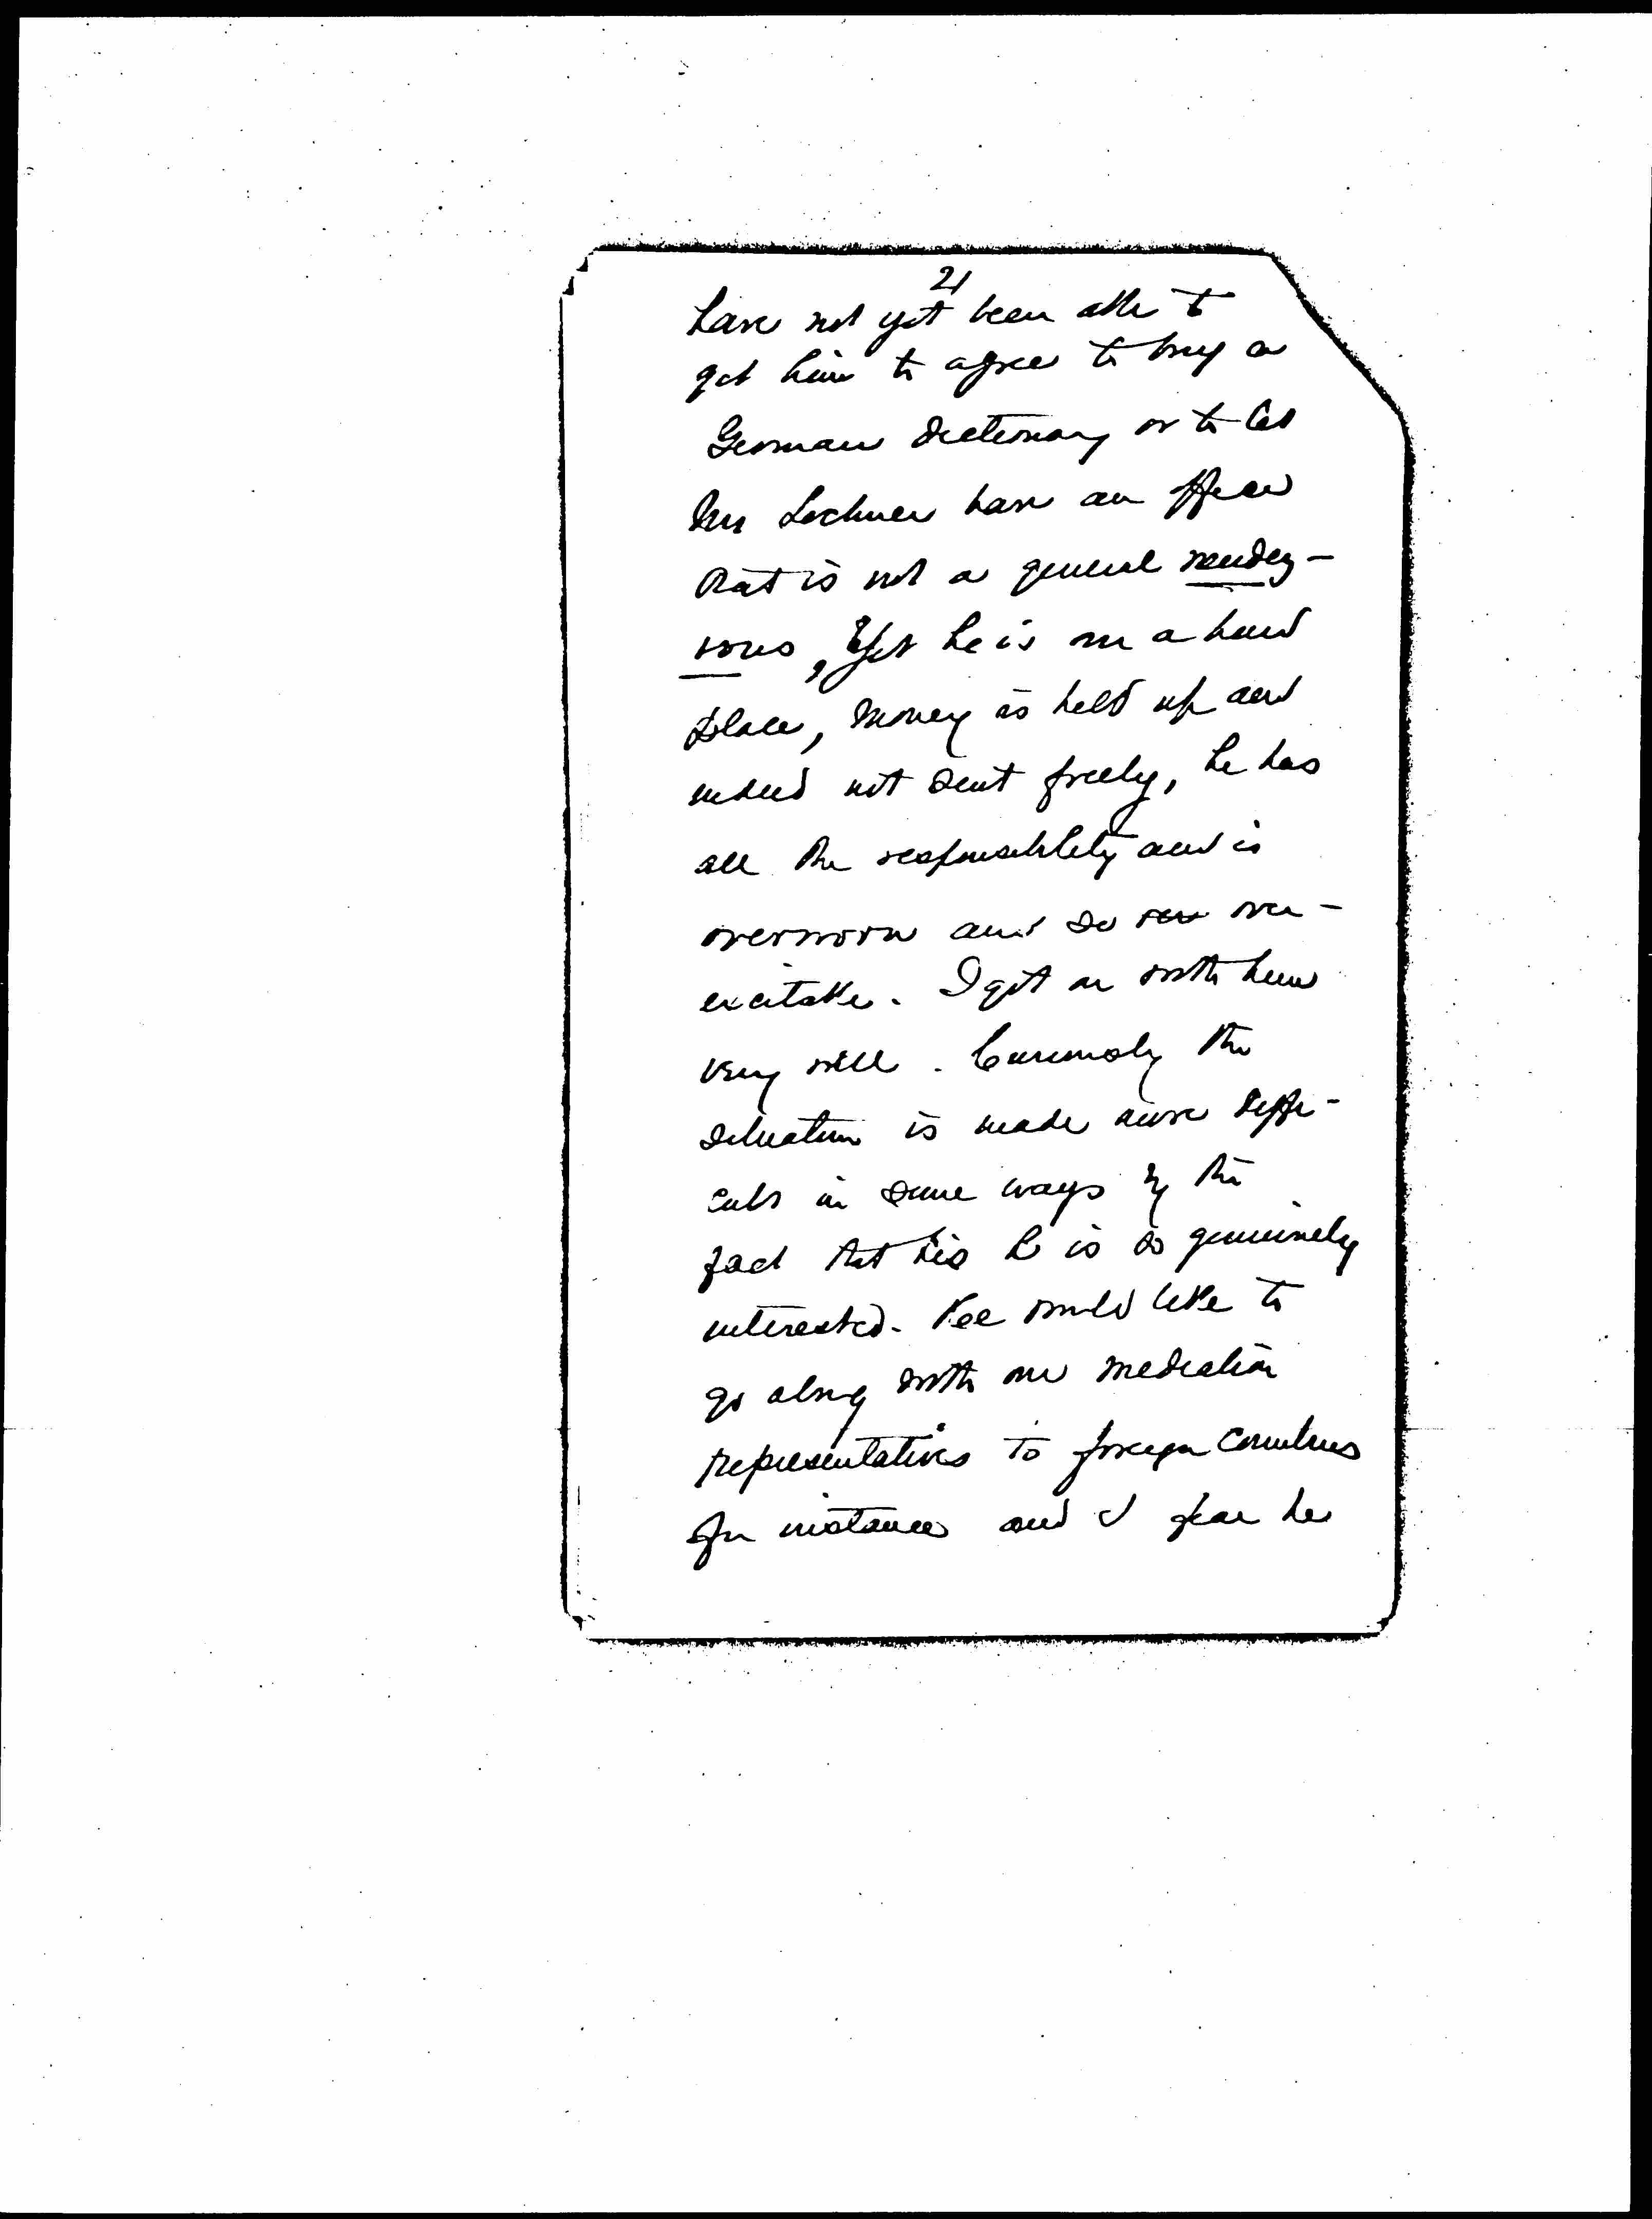 21
have not yet been able to
get him to agree to buy a
German dictionary or to let
Mr Lochner have an office
that is not a general rendez-
vous, Yet he is in a hard
place, money is held up and
indeed not sent freely, he has
all the responsibility and is
overworn and so over-
excitable. I get on with him
very well. Curiously the
situation is made more diffi-
cult in some ways by the
fact that his he is so genuinely
interested. He would like to
go along with our mediation
representatives to foreign countries
for instance and I fear he